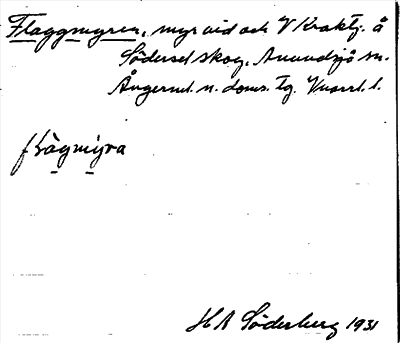 Flaggmyren, myr vid och V Kraktj. å
Södersel skog, Anundsjö sn.
Ångerml. n. doms. tg. Vnorrl. l.
flàgmýra
H A Söderberg 1931